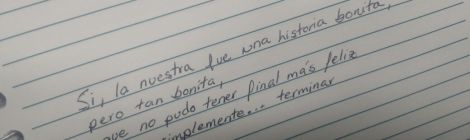 Si, la nuestra fue una historia bonita,
pero tan bonita,
que no pudo tener final más feliz
simplemente... terminar